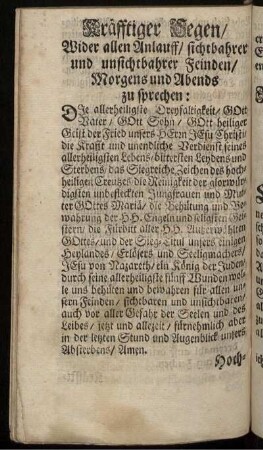 Kräfftiger Segen/
Wider allen Anlauff/ sichtbahrer
und unsichtbahrer Feinden/
Morgens und Abends
zu sprechen:
DIe allerheiligste Dreyfaltigkeit/ GOtt
Vater/ GOtt Sohn/ GOtt heiliger
Geist der Fried unsers HErrn JEsu Christi/
die Krafft und unendliche Verdienst seines
allerheiligsten Lebens/ bittersten Leydens und
Sterbens/ das Siegreiche Zeichen des hoch-
heiligen Creutzes/ die Reinigkeit der glorwür-
digsten unbefleckten Jungfrauen und Mut-
ter GOttes Mariä/ die Behütung und Be-
wahrung der HH. Engeln und seligsten Gei-
stern/ die Fürbitt aller HH. Außerwählten
GOttes/ und der Sieg-Titul unsers einigen
Heylandes/ Erlösers und Seeligmachers/
JEsu von Nazareth/ ein König der Juden/
durch seine allerheiligste fünff Wunden wol-
le uns behüten und bewahren für allen un-
sern Feinden/ sichtbaren und unsichtbaren/
auch vor aller Gefahr der Seelen und des
Leibes/ jetzt und allezeit/ fürnehmlich aber
in der letzten Stund und Augenblick unsers
Absterbens/ Amen.
Hoch-